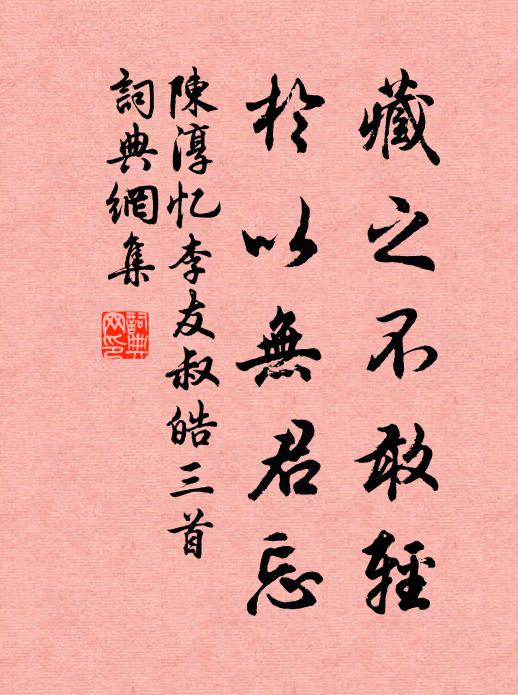 藏之不敢輕
於以無君忘
陳淳忆李友叔皓三首
詞典網集
詞典網印